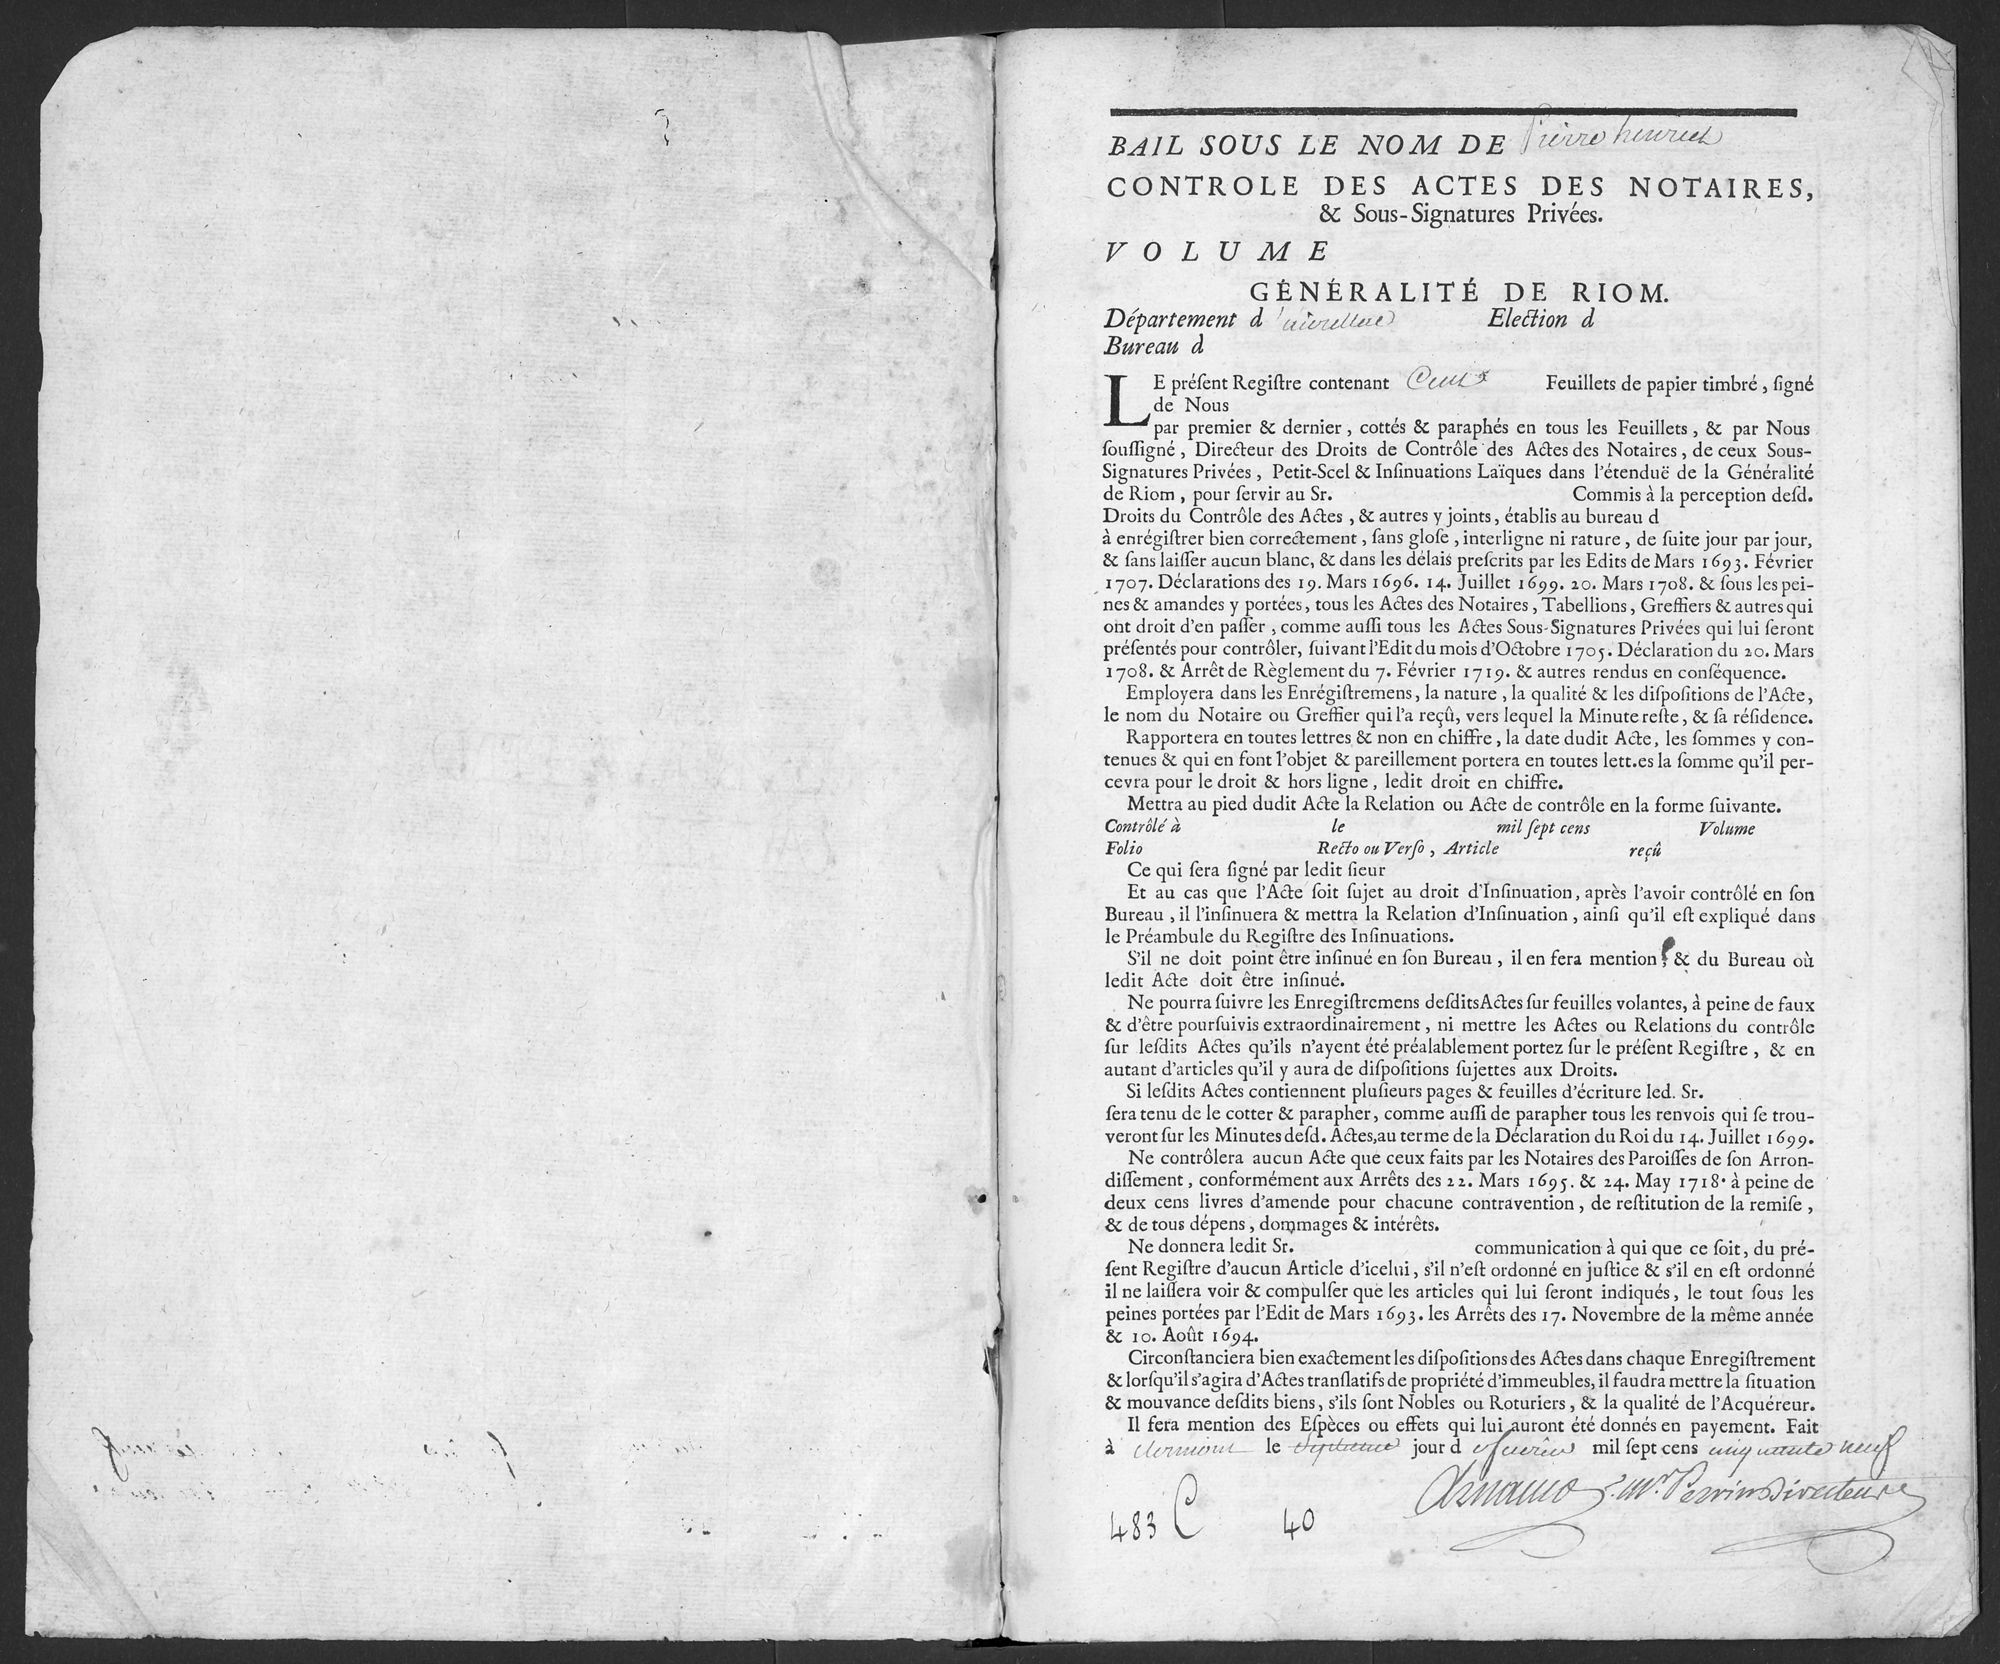 BAIL SOUS LE NOM DE Pierre henriet
CONTROLE DES ACTES DES NOTAIRES,
& Sous-Signatures Privées.
VOLUME
GÉNÉRALITÉ DE RIOM.
Département d'aurillac Election d
Bureau d
LE préſent Regiſtre contenant Cent Feuillets de papier timbré, ſigné
de Nous
par premier & dernier, cottés & paraphés en tous les Feuillets, & par Nous
ſouſſigné, Directeur des Droits de Contrôle des Actes des Notaires, de ceux Sous-
Signatures Privées, Petit-Scel & Inſinuations Laïques dans l'étenduë de la Généralité
de Riom, pour ſervir au Sr. Commis à la perception deſd.
Droits du Contrôle des Actes, & autres y joints, établis au bureau d
à enrégiſtrer bien correctement, ſans gloſe, interligne ni rature, de ſuite jour par jour,
& ſans laiſſer aucun blanc, & dans les délais preſcrits par les Edits de Mars 1693. Février
1707. Déclarations des 19. Mars 1696. 14. Juillet 1699. 20. Mars 1708. & ſous les pei-
nes & amandes y portées, tous les Actes des Notaires, Tabellions, Greffiers & autres qui
ont droit d'en paſſer, comme auſſi tous les Actes Sous-Signatures Privées qui lui ſeront
préſentés pour contrôler, ſuivant l'Edit du mois d'Octobre 1705. Déclaration du 20. Mars
1708. & Arrêt de Règlement du 7. Février 1719. & autres rendus en conſéquence.
Employera dans les Enrégiſtremens, la nature, la qualité & les diſpoſitions de l'Acte,
le nom du Notaire ou Greffier qui l'a reçû, vers lequel la Minute reſte, & ſa réſidence.
Rapportera en toutes lettres & non en chiffre, la date dudit Acte, les ſommes y con-
tenues & qui en font l'objet & pareillement portera en toutes lett.es la ſomme qu'il per-
cevra pour le droit & hors ligne, ledit droit en chiffre.
Mettra au pied dudit Acte la Relation ou Acte de contrôle en la forme ſuivante.
Contrôlé à le mil ſept cens Volume
Folio Recto ou Verſo, Article reçû
Ce qui ſera ſigné par ledit ſieur
Et au cas que l'Acte ſoit ſujet au droit d'Inſinuation, après l'avoir contrôlé en ſon
Bureau, il l'inſinuera & mettra la Relation d'Inſinuation, ainſi qu'il eſt expliqué dans
le Préambule du Regiſtre des Inſinuations.
S'il ne doit point être inſinué en ſon Bureau, il en fera mention, & du Bureau où
ledit Acte doit être inſinué.
Ne pourra ſuivre les Enregiſtremens deſdits Actes ſur feuilles volantes, à peine de faux
& d'être pourſuivis extraordinairement, ni mettre les Actes ou Relations du contrôle
ſur leſdits Actes qu'ils n'ayent été préalablement portez ſur le préſent Regiſtre, & en
autant d'articles qu'il y aura de diſpoſitions ſujettes aux Droits.
Si leſdits Actes contiennent pluſieurs pages & feuilles d'écriture led. Sr.
ſera tenu de le cotter & parapher, comme auſſi de parapher tous les renvois qui ſe trou-
veront ſur les Minutes deſd. Actes, au terme de la Déclaration du Roi du 14. Juillet 1699.
Ne contrôlera aucun Acte que ceux faits par les Notaires des Paroiſſes de ſon Arron-
diſſement, conformément aux Arrêts des 22. Mars 1695. & 24. May 1718. à peine de
deux cens livres d'amende pour chacune contravention, de reſtitution de la remiſe,
& de tous dépens, dommages & intérêts.
Ne donnera ledit Sr. communication à qui que ce ſoit, du pré-
ſent Regiſtre d'aucun Article d'icelui, s'il n'eſt ordonné en juſtice & s'il en eſt ordonné
il ne laiſſera voir & compulſer que les articles qui lui ſeront indiqués, le tout ſous les
peines portées par l'Edit de Mars 1693. les Arrêts des 17. Novembre de la même année
& 10. Août 1694.
Circonſtanciera bien exactement les diſpoſitions des Actes dans chaque Enregiſtrement
& lorſqu'il s'agira d'Actes tranſlatifs de propriété d'immeubles, il faudra mettre la ſituation
& mouvance deſdits biens, s'ils ſont Nobles ou Roturiers, & la qualité de l'Acquéreur.
Il fera mention des Eſpèces ou effets qui lui auront été donnés en payement. Fait
à clermont le jour d mil ſept cens cinquante neuf
Mr. Perrin Directeur
483 C 40